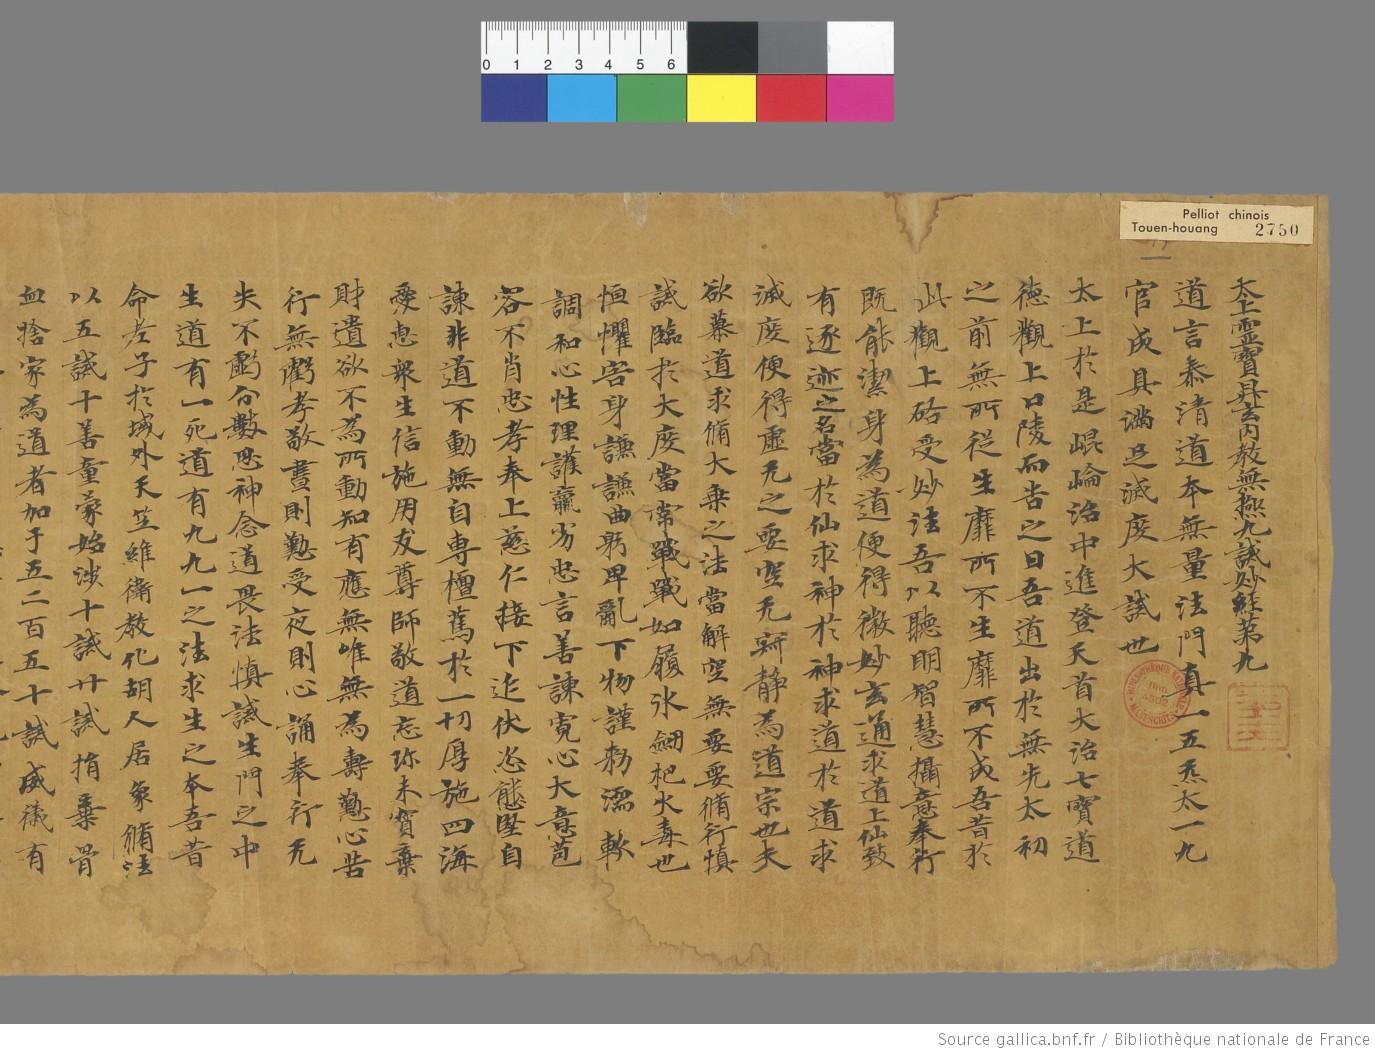 0 1 2 3 4 5 6
Pelliot chinois
Touen-houang 2750
太上靈寶昇玄內教無極九誡妙經第九
道言泰清道本無量法門真一五炁太一九
官成具滿足滅度大誡也
太上於是崐崘治中進登天首大治七寶道
德觀上口陵而告之曰吾道出於無先太初
之前無所從生靡所不生靡所不成吾昔於
此觀上啓受妙法吾以聽明智慧攝意奉行
既能潔身為道便得微妙玄通求道上仙致
有逐迹之名當於仙求神於神求道於道求
滅度便得虛无之要空无新靜為道宗也夫
欲慕道求脩大乘之法當解空無要要脩行慎
誡臨於大度當常戰戰如履氷劒杷火毒也
恒懼容身謙謙曲躬卑亂下物謹勑濡軟
調和心性理護羸劣忠言善諫寬心大意苞
容不肖忠孝奉上慈仁接下迮伏恣態堅自
諫非道不動無自専檀篤於一切厚施四海
愛惠衆生信施用友尊師敬道忘珎未寳棄
財遺欲不為所動知有應無唯無為壽懃心苦
行無虧孝敬晝則懃受夜則心誦奉行无
失不虧分數思神念道畏法慎誡生門之中
生道有一死道有九九一之法求生之本吾昔
命老子於域外天竺維衛教化胡人居象脩法
以五誡十善童蒙始涉十誡廿誡捐棄骨
血捨家為道者加于五二百五十誡威儀有
Source gallica.bnf.fr / Bibliothèque nationale de France